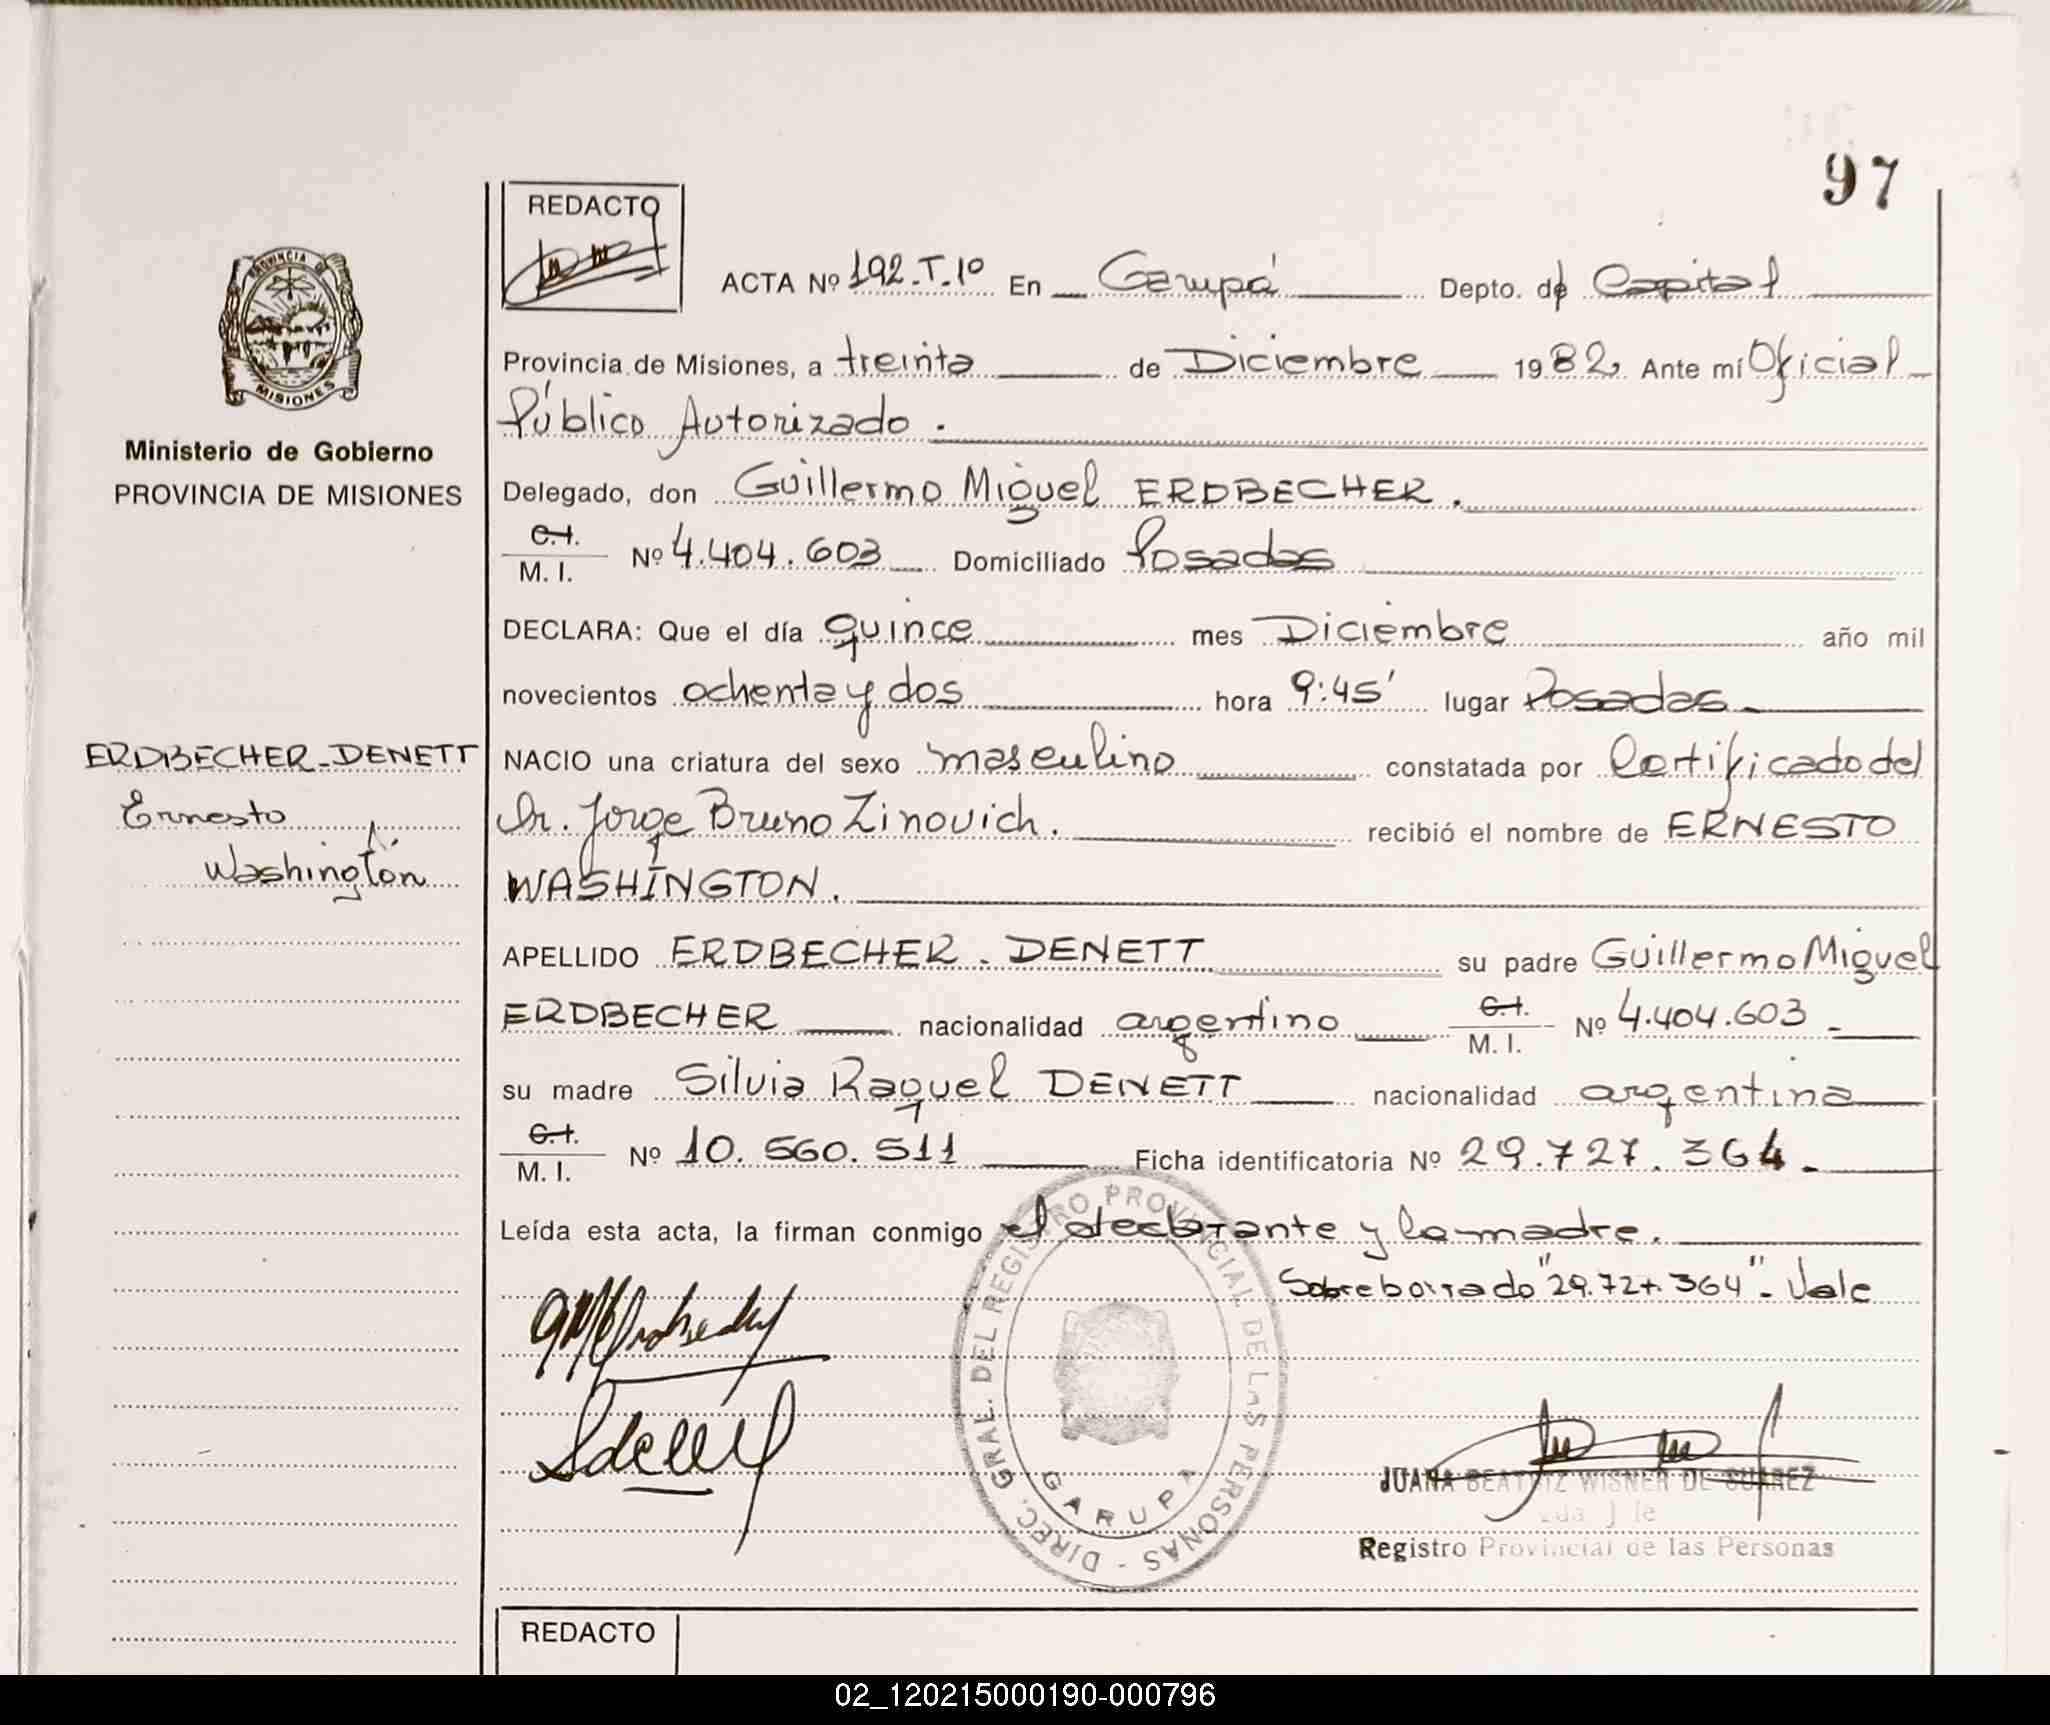 97
REDACTO
ACTA Nº 192.T.1º En Garupá Depto. de Capital
PROVINCIA DE
MISIONES
Provincia de Misiones, a treinta de Diciembre 1982. Ante mí Oficial
Público Autorizado.
Ministerio de Gobierno
PROVINCIA DE MISIONES
Delegado, don Guillermo Miguel ERDBECHER.
C.I.
M. I. Nº 4.404.603 Domiciliado Posadas
DECLARA: Que el día quince mes Diciembre año mil
novecientos ochenta y dos hora 9:45' lugar Posadas.
ERDBECHER-DENETT
Ernesto
Washington
NACIO una criatura del sexo masculino constatada por Certificado del
Dr. Jorge Bruno Zinovich. recibió el nombre de ERNESTO
WASHINGTON.
APELLIDO ERDBECHER - DENETT su padre Guillermo Miguel
ERDBECHER nacionalidad argentino C.I.
M. I. Nº 4.404.603 -
su madre Silvia Raquel DENETT nacionalidad argentina
C.I.
M. I. Nº 10.560.511 Ficha identificatoria Nº 29.727.364.
Leída esta acta, la firman conmigo el declarante y la madre.
Sobreborrado "29.727.364" - Vale
DIREC. GRAL. DEL REGISTRO PROVINCIAL DE LAS PERSONAS -
GARUPA
JUANA BEATRIZ WISNER DE SUAREZ
Registro Provincial de las Personas
REDACTO
02_120215000190-000796